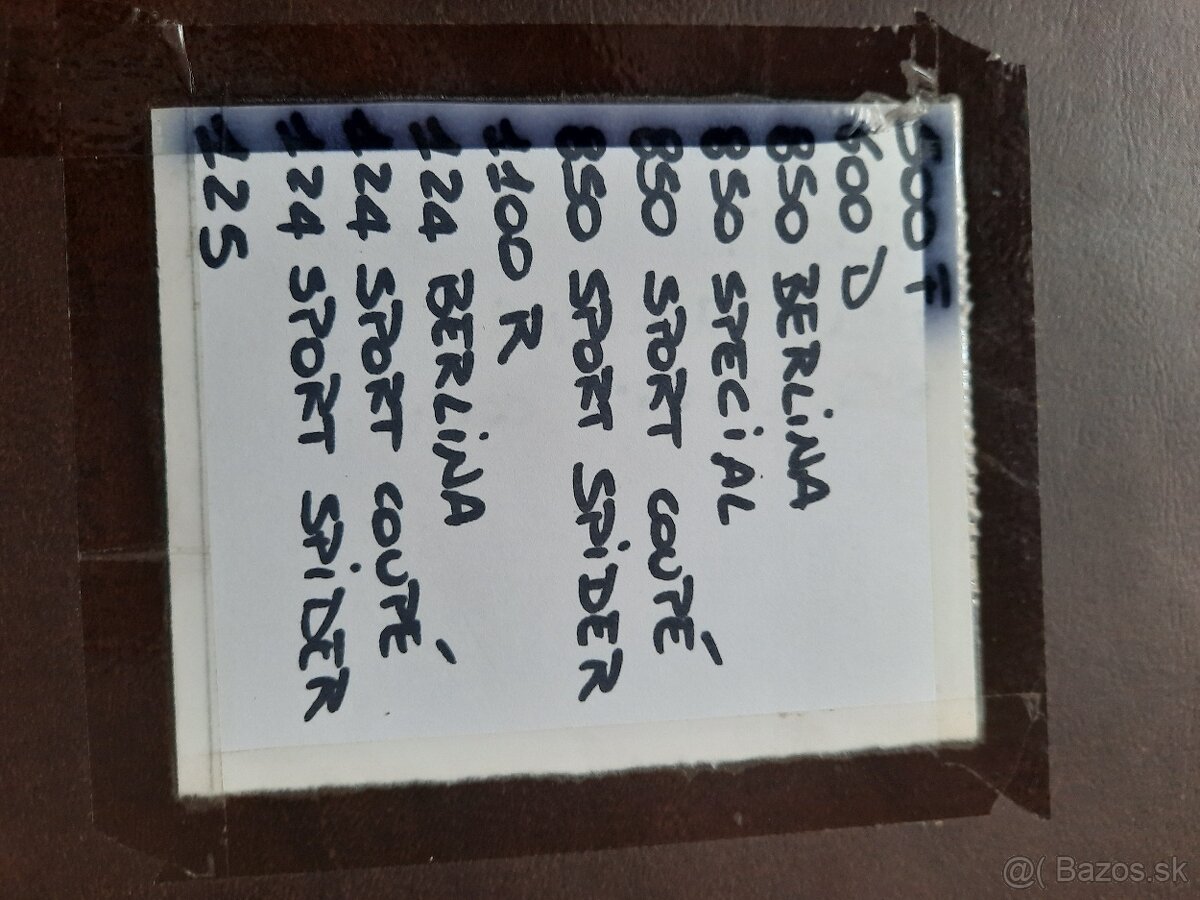 500 F
600 D
850 BERLINA
850 SPECIAL
850 SPORT COUPÉ
850 SPORT SPIDER
1100 R
124 BERLINA
124 SPORT COUPÉ
124 SPORT SPIDER
125
@( Bazos.sk